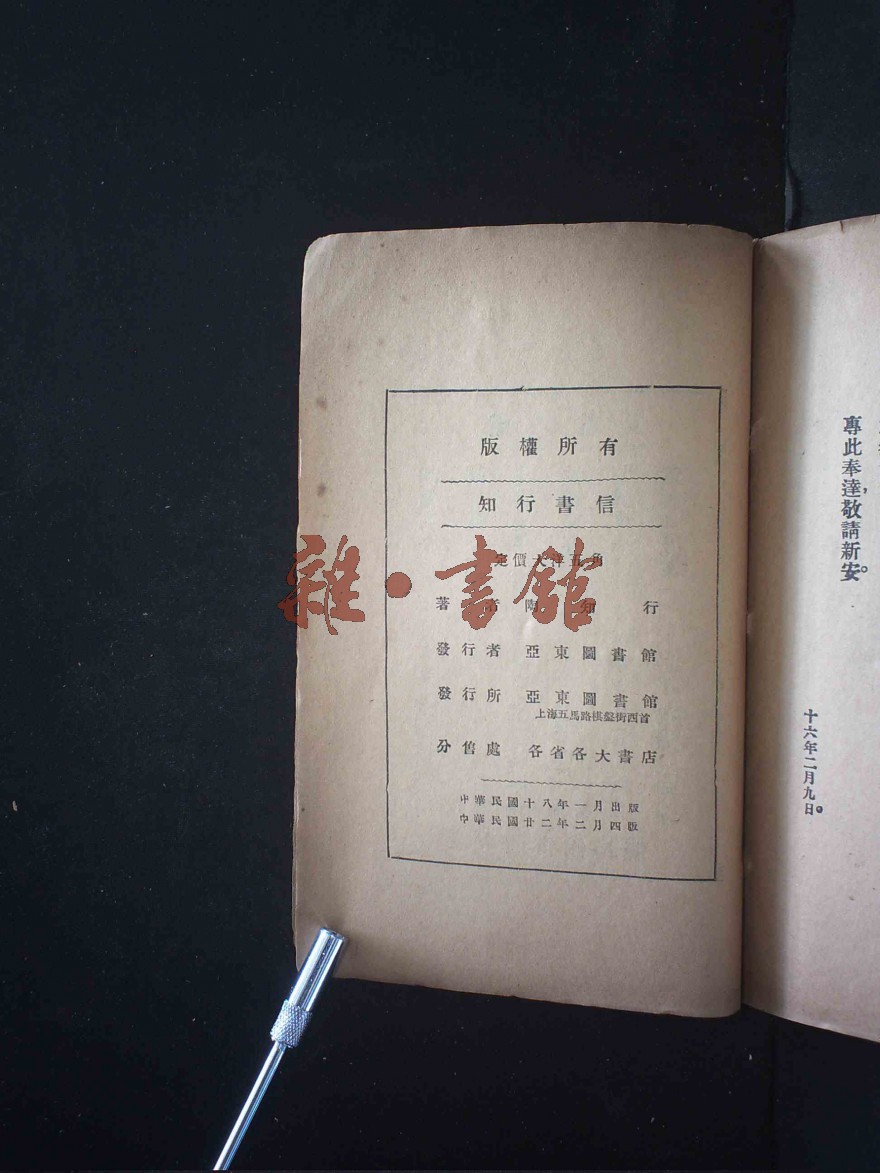 版權所有
知行書信
定價大洋五角
著者 陶知行
發行者 亞東圖書館
發行所 亞東圖書館
上海五馬路棋盤街西首
分售處 各省各大書店
中華民國十八年一月出版
中華民國廿二年二月四版
雜·書館
專此奉達，敬請新安。
十六年二月九日。